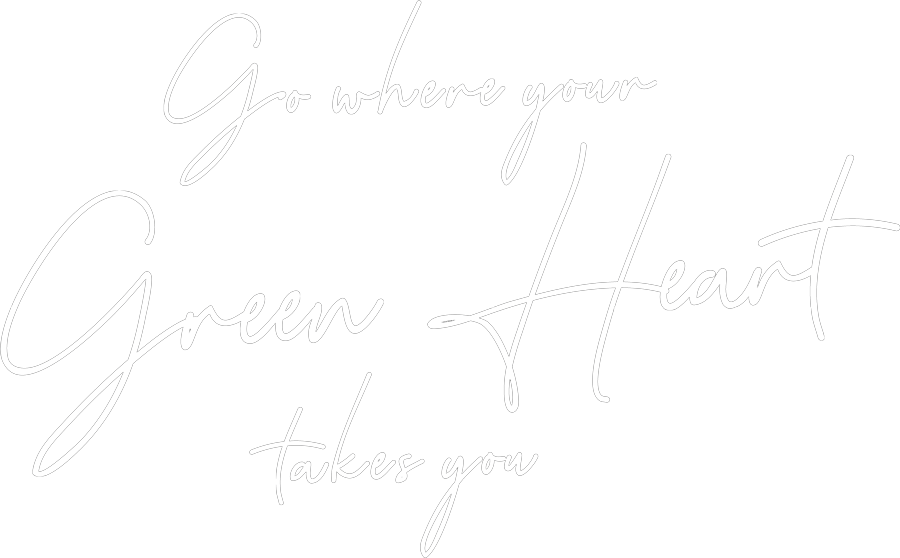 Go where your
Green Heart
takes you